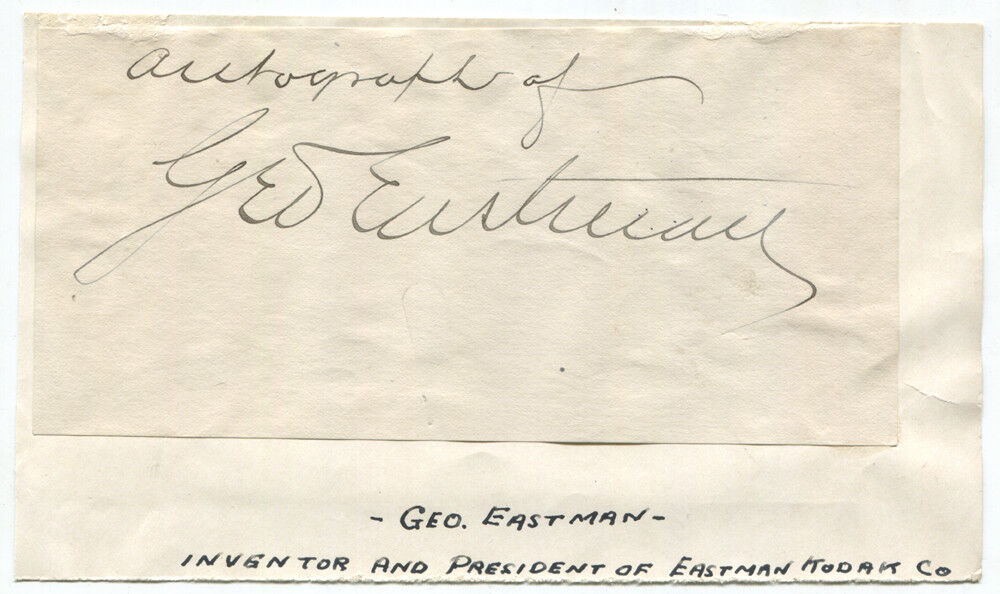 Autograph of
Geo Eastman
- GEO. EASTMAN -
INVENTOR AND PRESIDENT OF EASTMAN KODAK CO